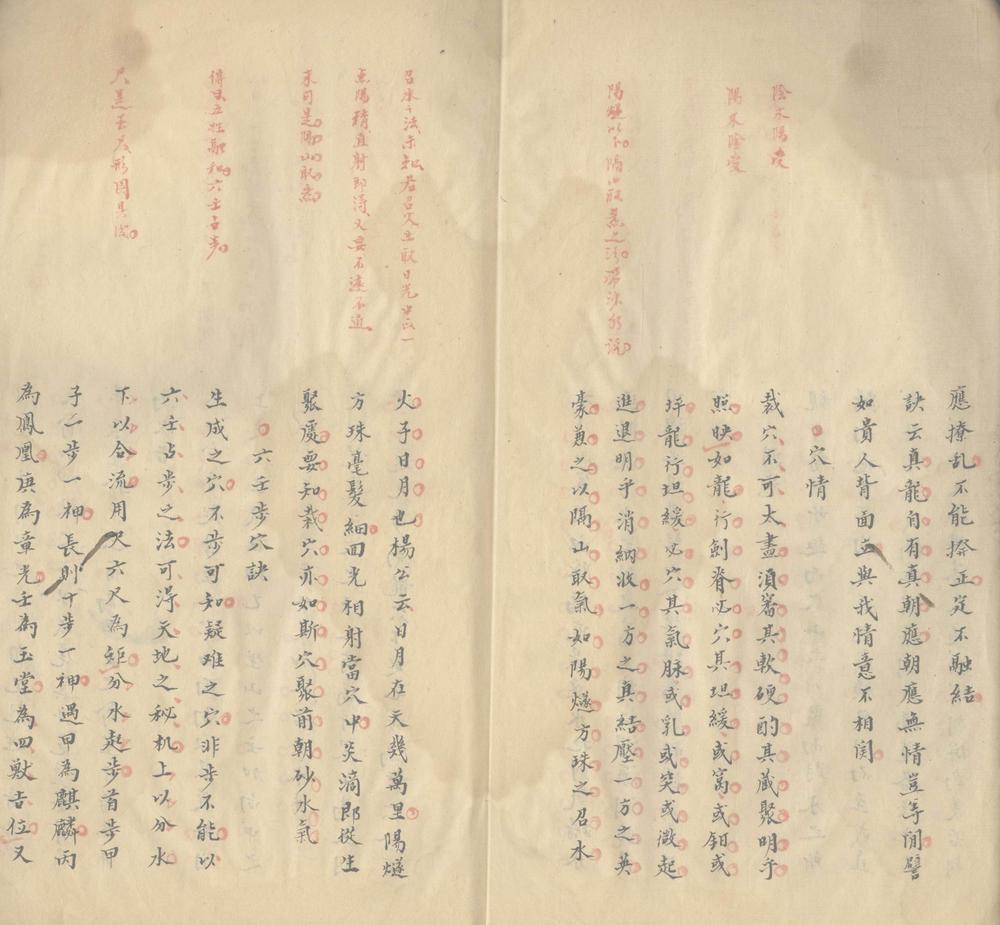 陰來陽受
陽來陰受
陽燧以下隔山取氣之法
應撩乱不能捺正定不融結
訣云真龍自有真朝應朝應無情豈等閒譬
如貴人背面立與我情意不相関
穴情
裁穴不可太盡須審其軟硬酌其蔵聚明乎
照映如龍行剑脊必穴其坦緩或窩或鉗或
坪龍行坦緩必穴其氣脉或乳或突或微起
進退明乎消納收一方之真結壓一方之英
豪兼之以隔山取氣如陽燧方珠之召水
召水之法未知若召火立取日光中必一
点陽精直射即得又要不遠不近
末句是隔山取氣
六壬占步
尺是玉尺形図具後
火子日月也楊公云日月在天幾萬里陽燧
方珠毫髮細面光相射當穴中炎滴郎從生
聚處要知栽穴亦如斯穴聚前朝砂水氣
六壬步穴訣
生成之穴不步可知疑难之穴非步不能以
六壬占步之法可淂天地之秘机上以分水
下以合流用尺六尺為矩分水起步首步甲
子一步一神長則十步一神遇甲為麒麟丙
為鳳凰庚為章光壬為玉堂為四獸吉位又